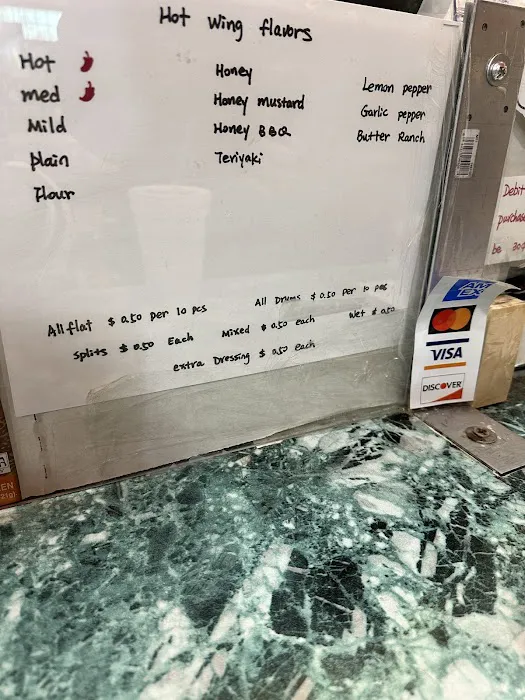 Hot Wing flavors
Hot
med
Mild
plain
Flour
Honey
Honey mustard
Honey BBQ
Teriyaki
Lemon pepper
Garlic pepper
Butter Ranch
All flat $ 0.50 per 10 pcs
All Drums $ 0.50 per 10 pcs
Splits $ 0.50 Each
Mixed $ 0.50 each
Wet $ 0.50
extra Dressing $ 0.50 each
Debit
purchase
be 30¢
AM
EX
VISA
DISCOVER
EN
21g)